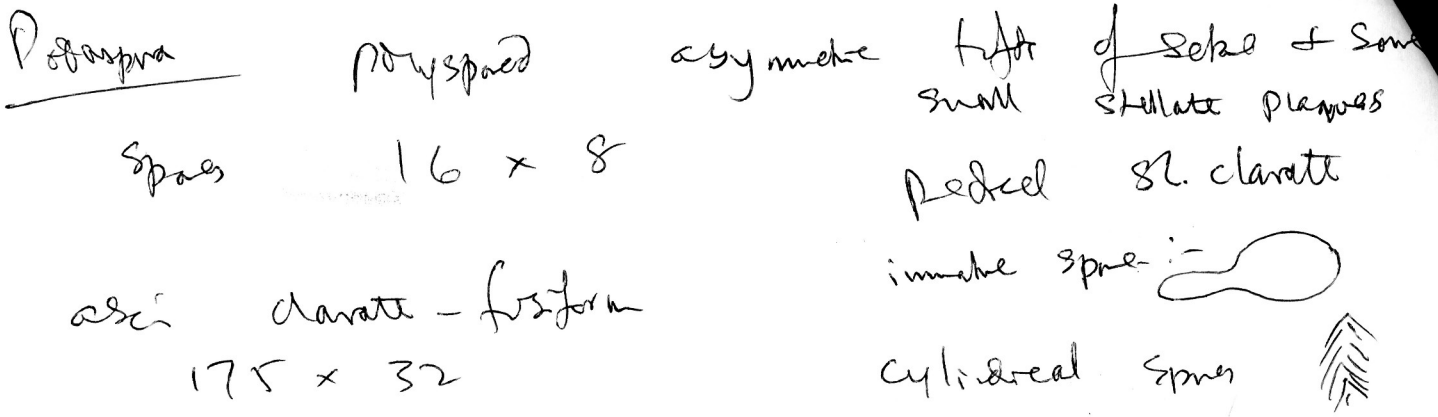 Podospora polyspored asymmetric tufts of setae & some
small stellate plaques
spores 16 x 8
pedicel sl. clavate
immature spore :-
asci clavate - fusiform
175 x 32
cylindrical spores